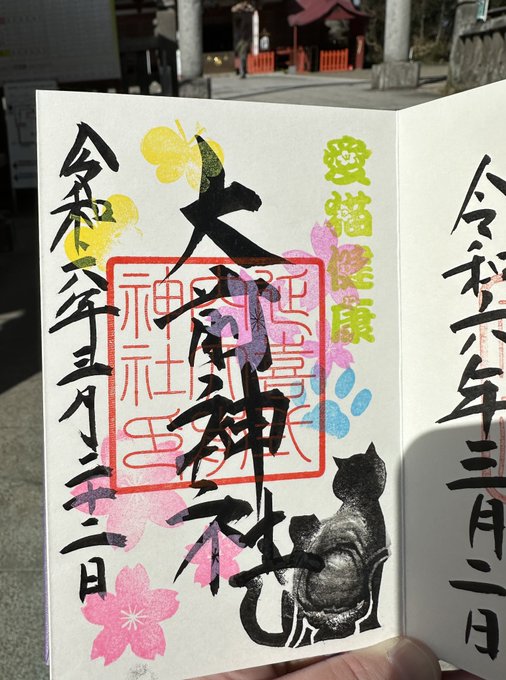 令和六年三月二日
愛猫健康
大前神社
延喜式
神社印
令和六年三月二十二日